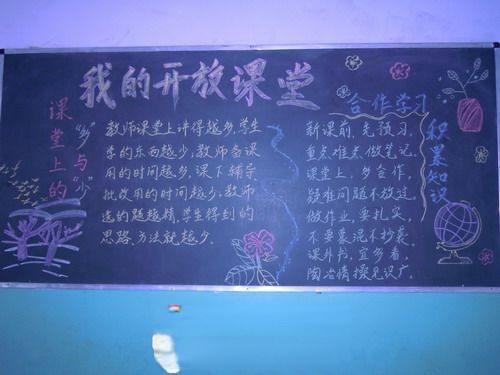 我的开放课堂
课堂上的
“多”与“少”
教师课堂上讲得越多,学生
学的东西越少;教师备课
用的时间越少,课下辅导
批改用的时间越少;教师
选的题越精,学生得到的
思路、方法就越少.
合作学习
积累知识
新课前,先预习,
重点难点做笔记.
课堂上,多合作,
疑难问题不放过.
做作业,要扎实,
不要蒙混不抄袭.
课外书,宜多看,
陶冶情操见识广.